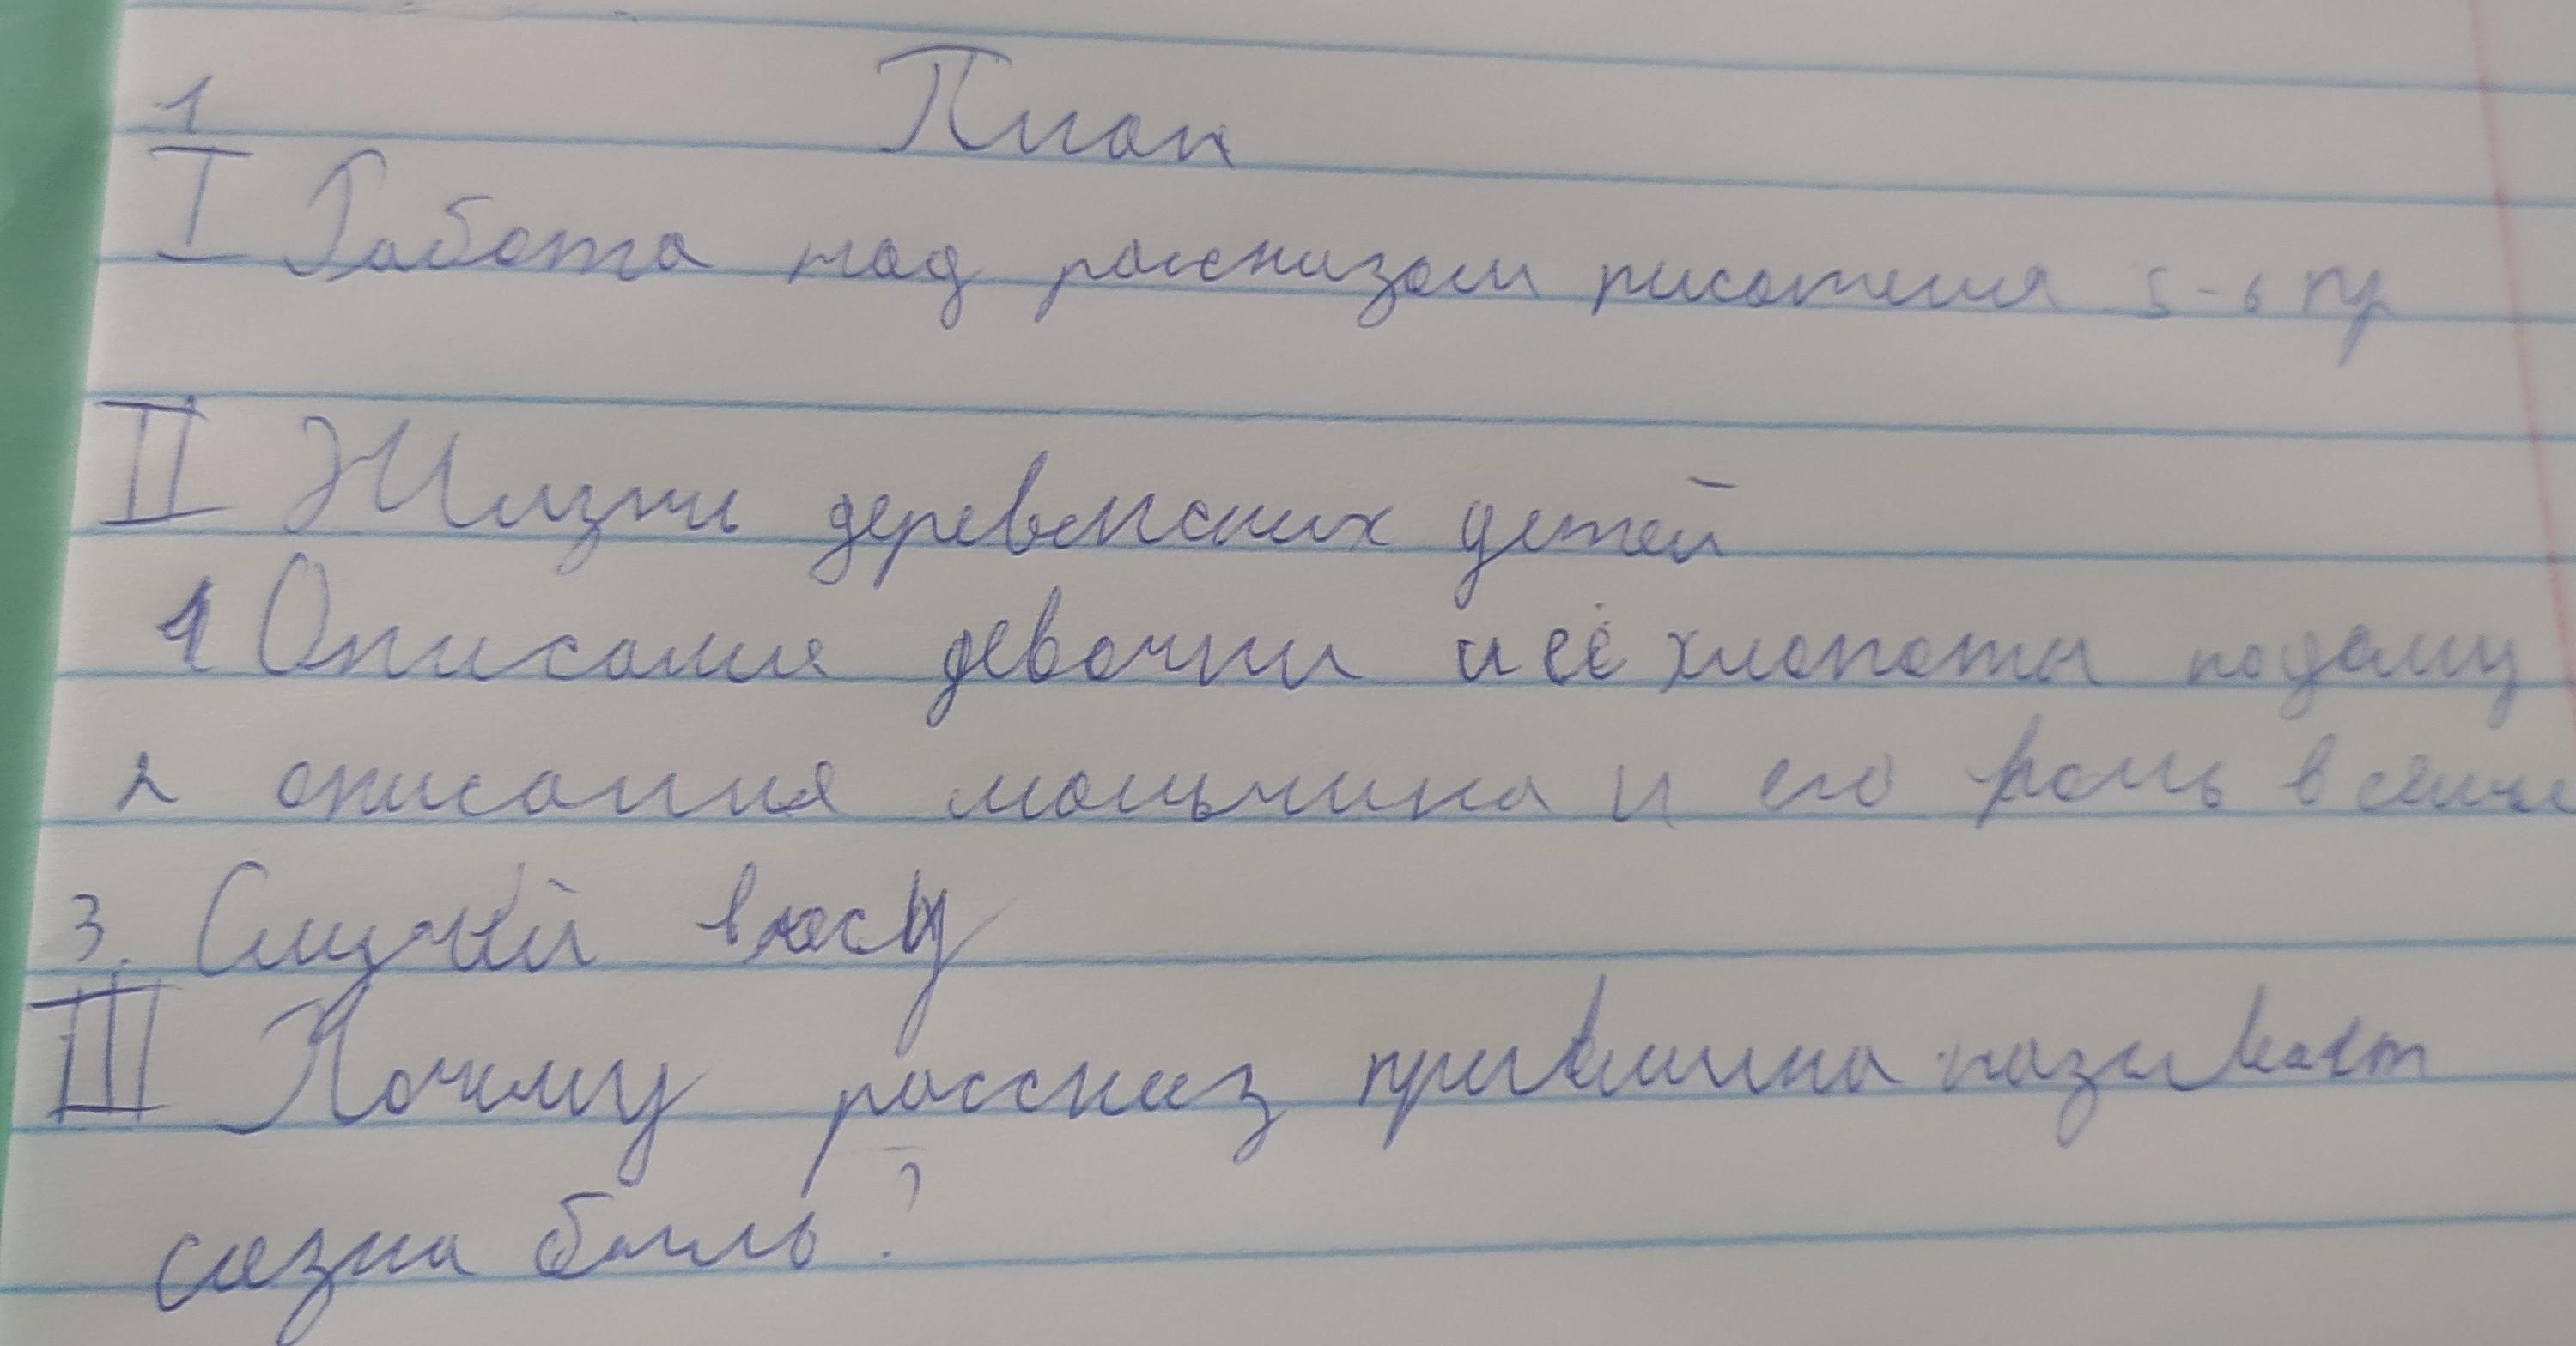 1 План
I Работа над рассказом писателя 5-6 пр
II Жизнь деревенских детей
1 Описание девочки и её хлопоты по дому
2 описания мальчика и его роль в семье
3. Случай в лесу
III Почему рассказ пришвина называет
сказка быль?